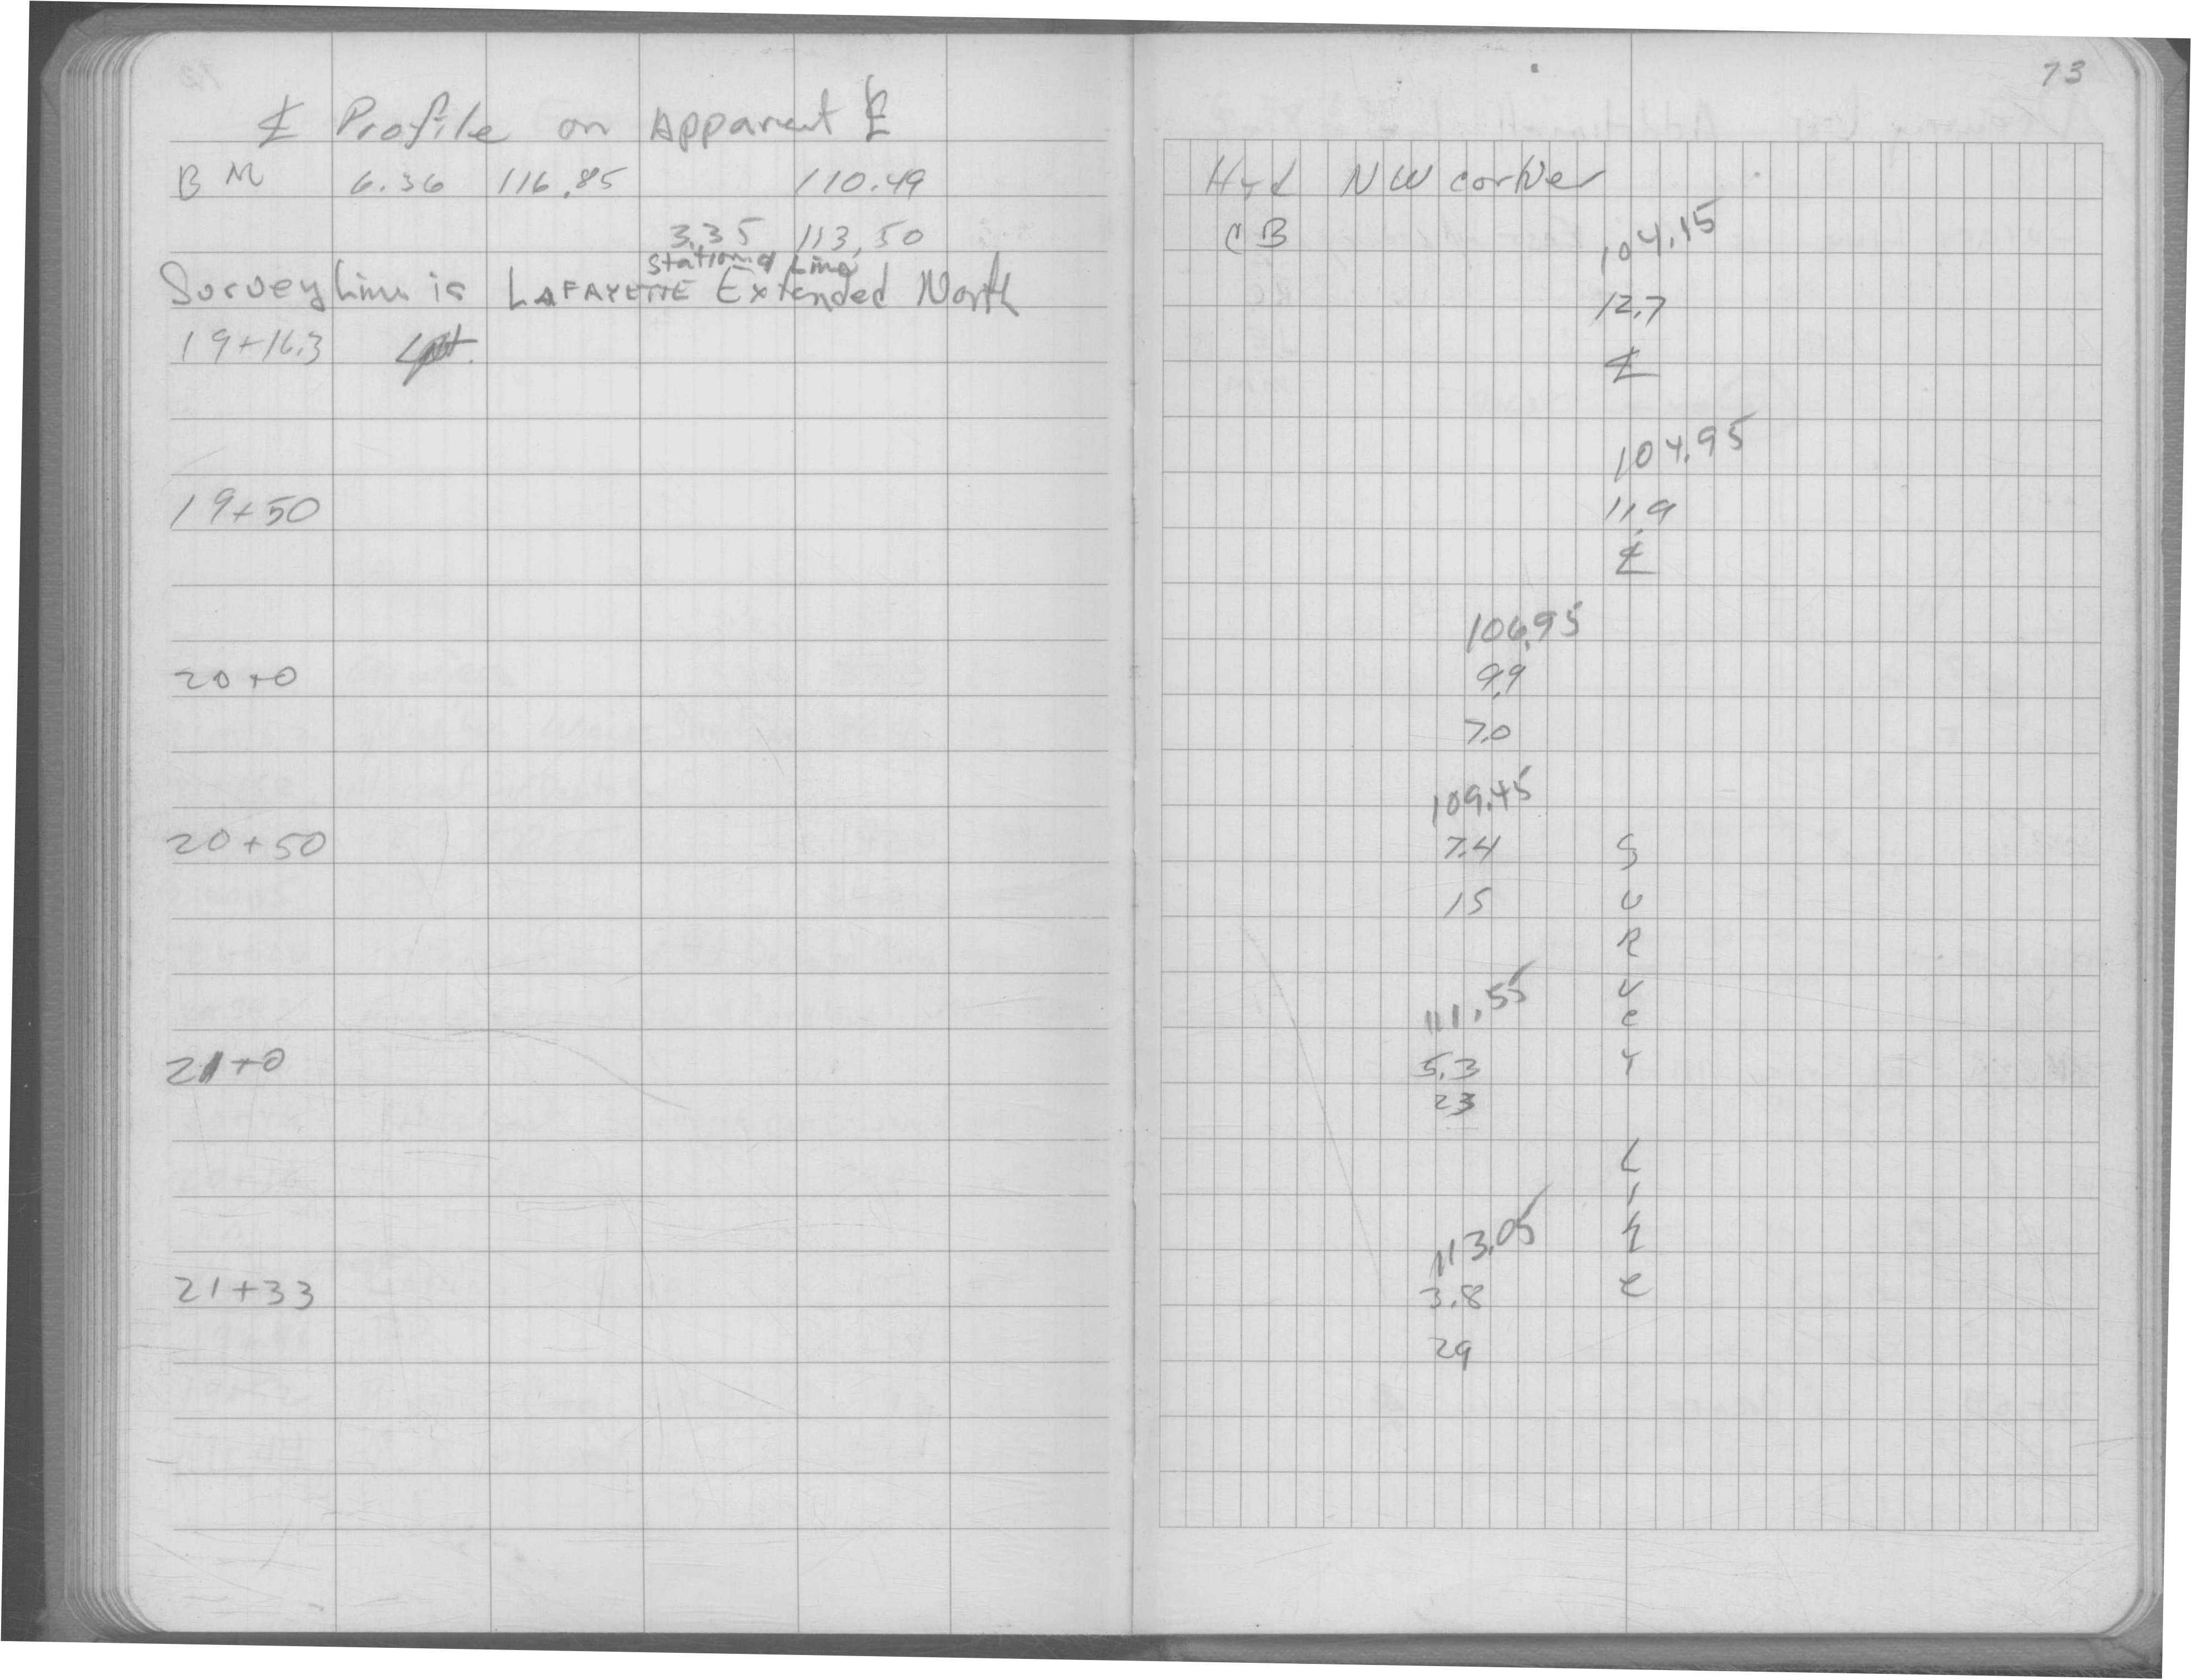 ℄ Profile on Apparent ℄
BM 6.36 116.85 110.49
3.35 113.50
Stationed Line
Survey Line is LAFAYETTE Extended North
19+16.3
19+50
20+0
20+50
21+0
21+33
73
Hyd NW corner
CB
104.15
12.7
℄
104.95
11.9
℄
106.95
9.9
7.0
109.45
7.4
15
111.55
5.3
23
113.05
3.8
29
SURVeY
LINe